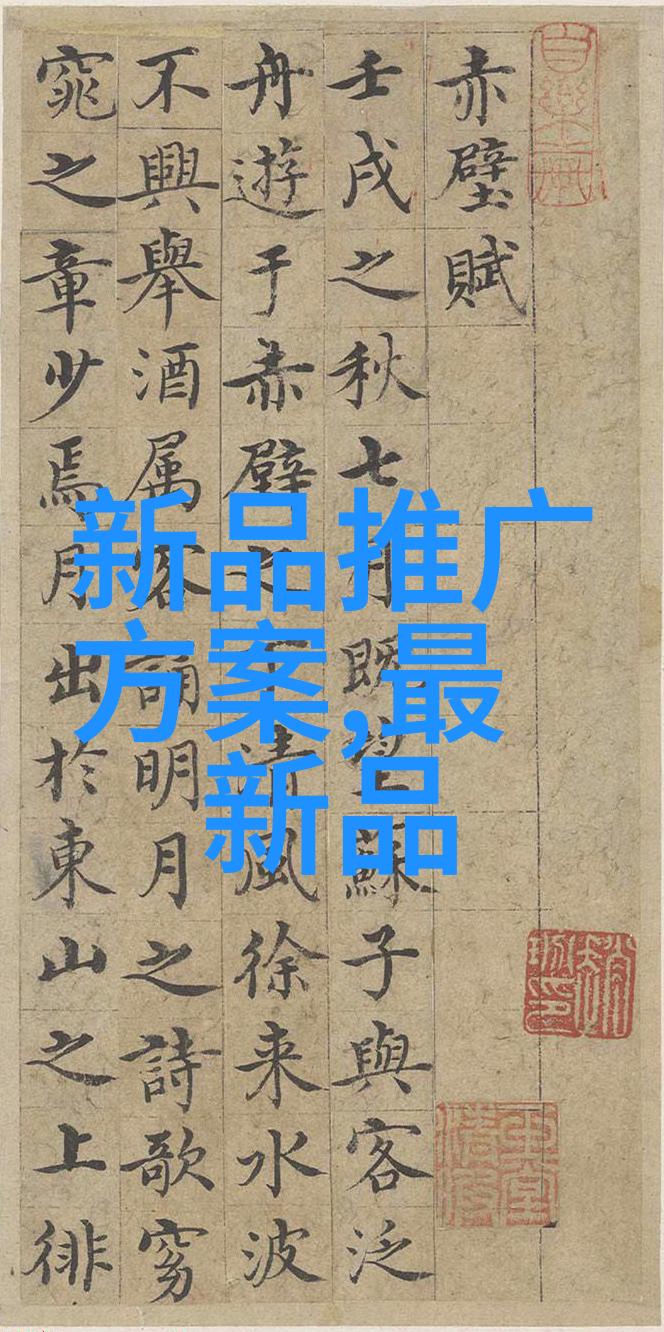 赤壁賦
壬戌之秋七月既望蘇子與客泛
舟遊于赤壁之下清風徐来水波
不興舉酒属客誦明月之詩歌窈
窕之章少焉月出於東山之上徘
新品推广
方案,最
新品